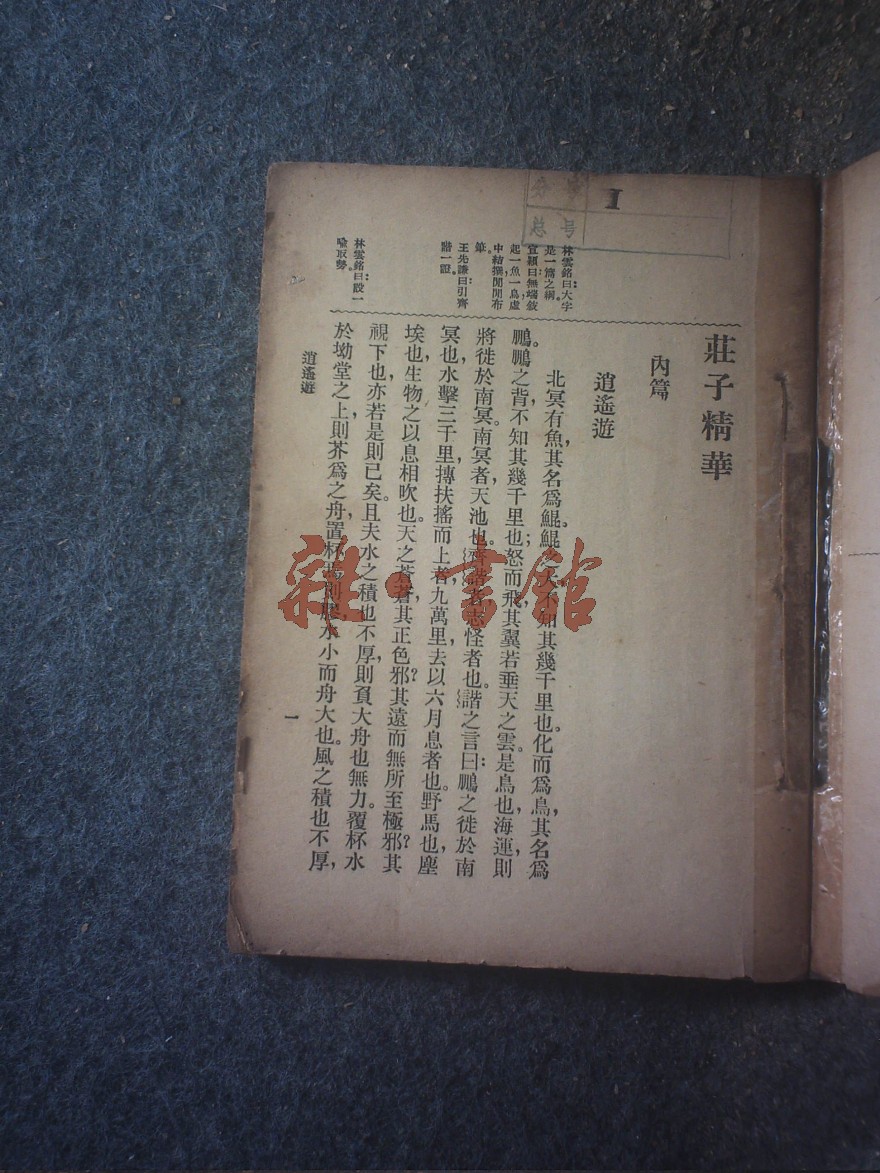 莊子精華
內篇
逍遙遊
北冥有魚，其名爲鯤。鯤之大，不知其幾千里也。化而爲鳥，其名爲
鵬。鵬之背，不知其幾千里也；怒而飛，其翼若垂天之雲。是鳥也，海運則
將徙於南冥。南冥者，天池也。齊諧者，志怪者也。諧之言曰：鵬之徙於南
冥也，水擊三千里，摶扶搖而上者九萬里，去以六月息者也。野馬也，塵
埃也，生物之以息相吹也。天之蒼蒼，其正色邪？其遠而無所至極邪？其
視下也，亦若是則已矣。且夫水之積也不厚，則負大舟也無力。覆杯水
於坳堂之上，則芥爲之舟，置杯焉則膠，水小而舟大也。風之積也不厚，
林雲銘曰：大字
是一篇之綱。
宣穎曰：無端敍
起一魚一鳥，虛
中結撰，閒閒布
筆。
王先謙曰：引齊
諧一證。
林雲銘曰：設一
喻取勢。
逍遙遊
一
总号
雜·書館